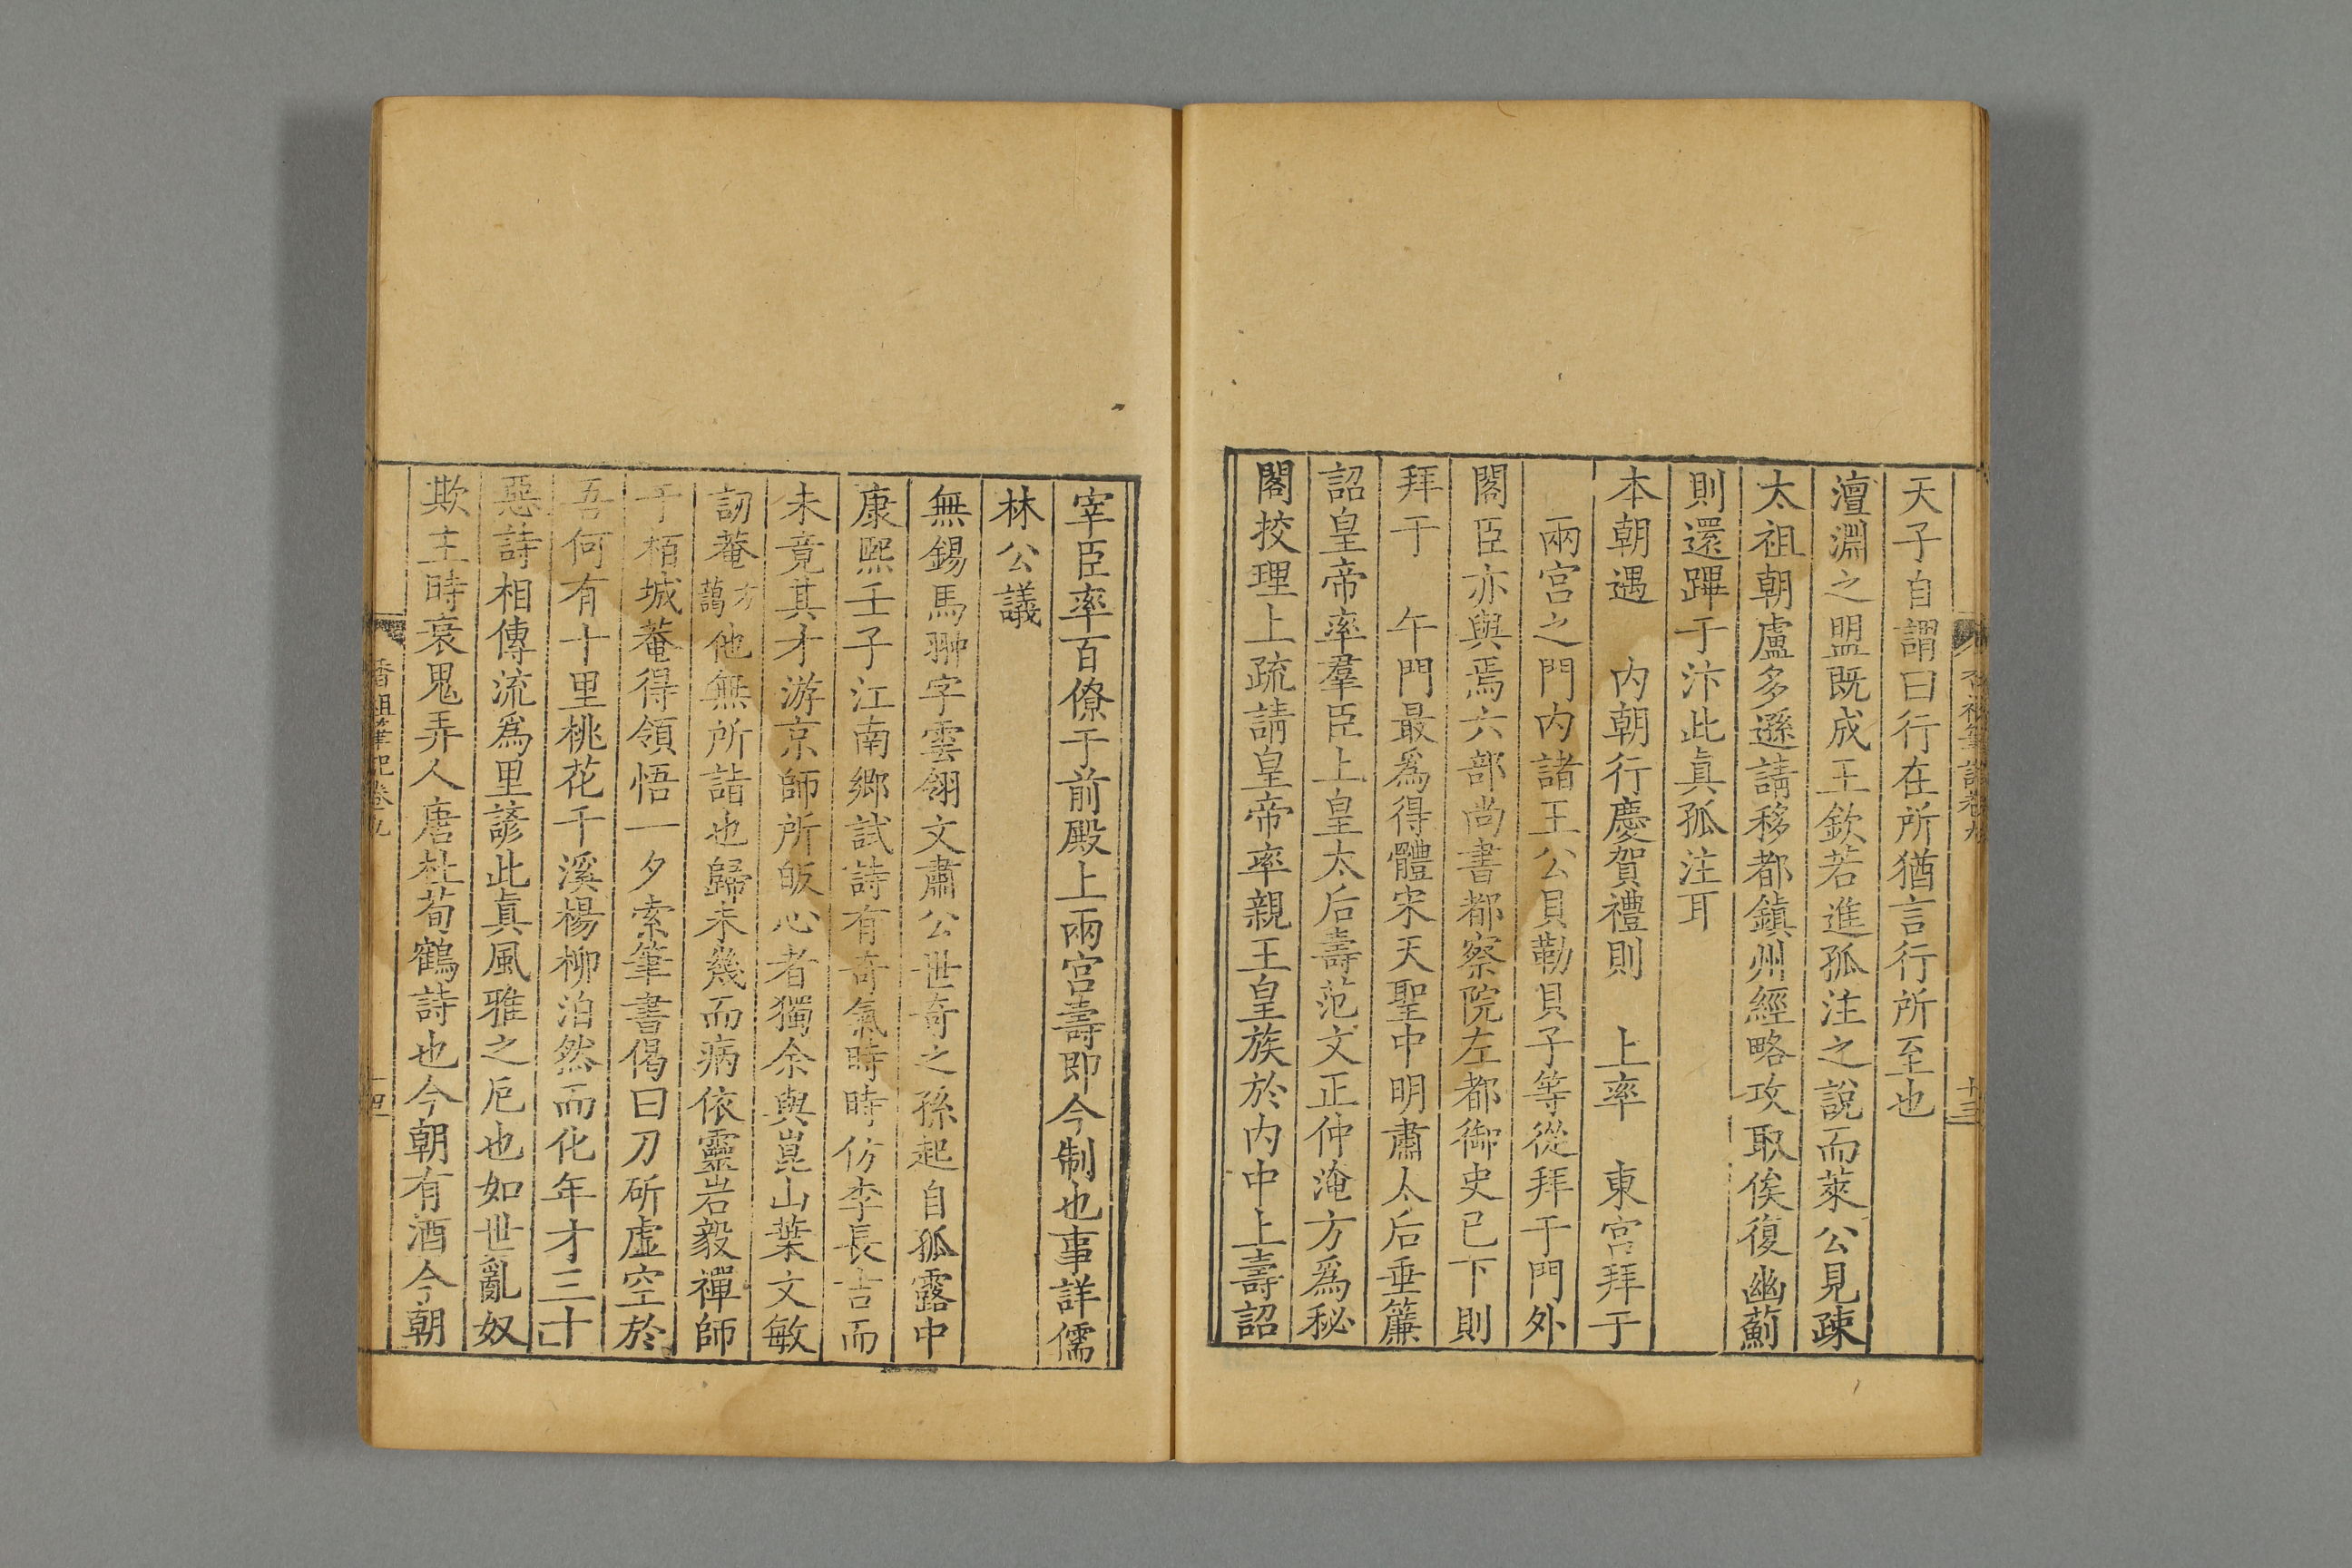 香祖筆記卷九
十三
天子自謂曰行在所猶言行所至也
澶淵之盟既成王欽若進孤注之說而萊公見疎
太祖朝盧多遜請移都鎮州經略攻取俟復幽薊
則還蹕于汴此眞孤注耳
本朝遇 內朝行慶賀禮則 上率 東宮拜于
兩宮之門內諸王公貝勒貝子等從拜于門外
閣臣亦與焉六部尚書都察院左都御史已下則
拜于 午門最爲得體宋天聖中明肅太后垂簾
詔皇帝率羣臣上皇太后壽范文正仲淹方爲秘
閣挍理上疏請皇帝率親王皇族於內中上壽詔
宰臣率百僚于前殿上兩宮壽即今制也事詳儒
林公議
無錫馬翀字雲翎文肅公世奇之孫起自孤露中
康熙壬子江南鄉試詩有奇氣時時仿李長吉而
未竟其才游京師所皈心者獨余與崑山葉文敏
訒菴方藹他無所詣也歸未幾而病依靈岩毅禪師
于栢城菴得領悟一夕索筆書偈曰刀斫虛空於
吾何有十里桃花千溪楊柳泊然而化年才三十
惡詩相傳流爲里諺此眞風雅之厄也如世亂奴
欺主時衰鬼弄人唐杜荀鶴詩也今朝有酒今朝
香祖筆記卷九